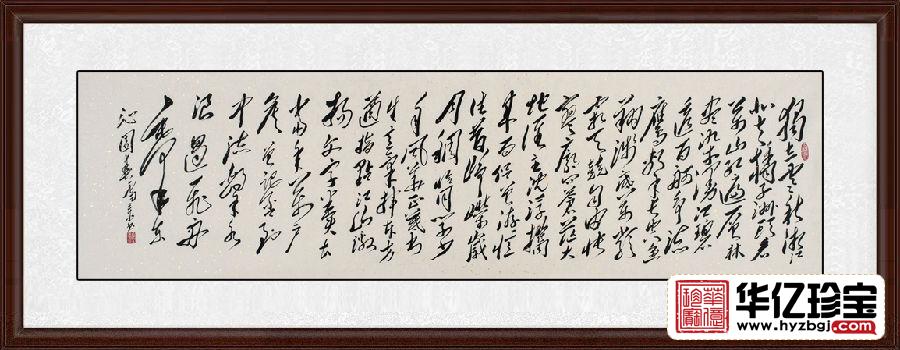 独立寒秋湘江
北去橘子洲头看
万山红遍层林
尽染漫江碧
透百舸争流
鹰击长空鱼
翔浅底万类
霜天竞自由怅
寥廓问苍茫大
地谁主沉浮携
来百侣曾游忆
往昔峥嵘岁
月稠恰同学少
年风华正茂书
生意气挥斥方
遒指点江山激
扬文字粪土
当年万户
侯曾记否到
中流击水
浪遏飞舟
沁园春
华亿珍宝
www.hyzbgj.com